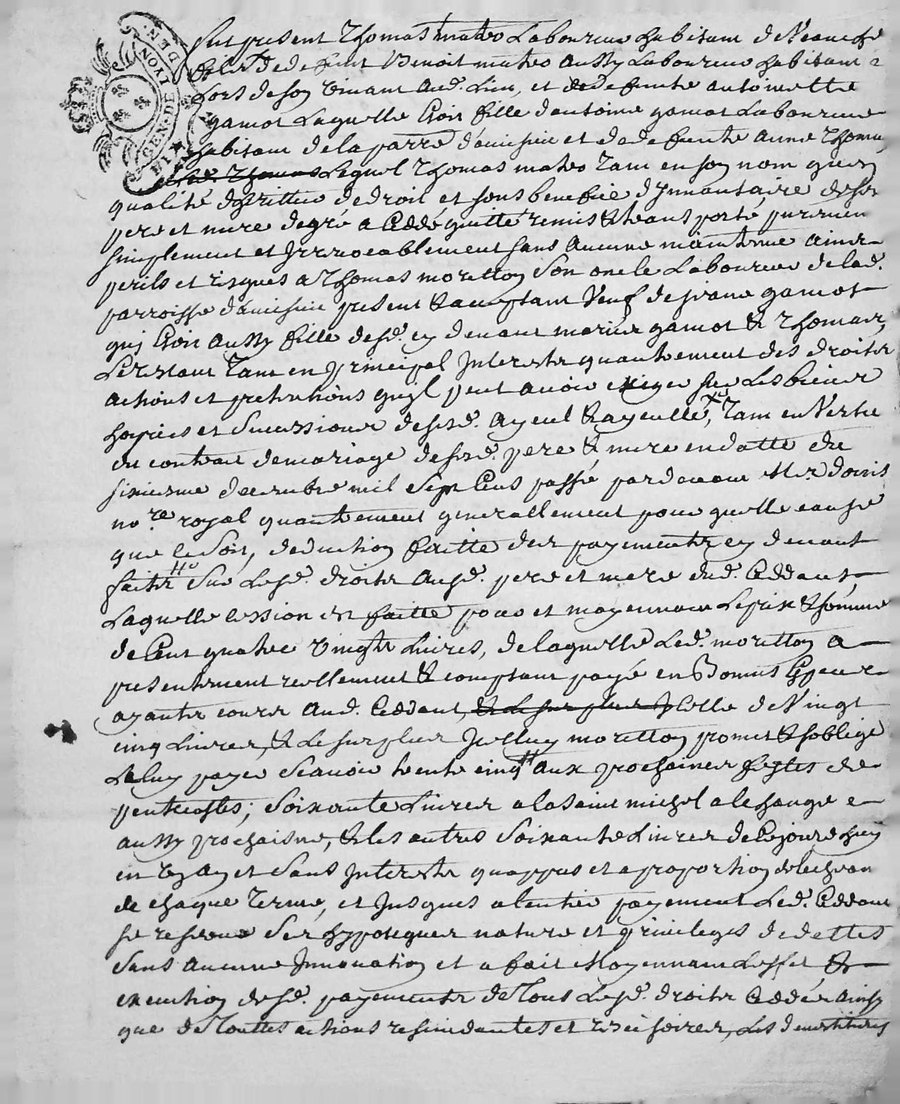 GEN. DE LYON
DEN.
Fut present Thomas mateo Laboureur habitant de
fils de defunt Benoit mateo aussy Laboureur habitant
Lors de son vivant aud. Lieu, et de defunte antoinette
gamot Laquelle Etoit fille d'antoine gamot Laboureur
habitant de la parre d'amisieu et de defunte anne Thomas
Lequel Thomas mateo Tant en son nom qu'en
qualité d'heritier de droit et sous benefice d'Innantaire de ses
pere et mere de gré a Cedé quitté remis & transporté purement
simplement et Irrevocablement sans aucune maintenue a ses
perils et risques a Thomas moretton son oncle Laboureur de lad.
parroisse d'amisieu present & acceptant veuf de jeane gamot
qui Etoit aussy fille desd. cy devant mariés gamot & Thomas,
Tant en principal Interests quautrement des droits
actions et pretentions quil peut avoir exiger sur Les biens
hoyries et Sucessions desd. ayeul & ayeulle, Tant en Vertu
du contrat de mariage desd. pere & mere en datte du
sixiesme decembre mil Sept Cens passé pardevant Mr.
nore. royal quautrement generallement pour quelle cause
que ce Soit, deduction faitte des payements cy devant
faits Sur Lesd. droits ausd. pere et mere dud. Cedant
Laquelle cession est faitte pour et moyennant Le prix & somme
de Cent quatre vingts Livres, de laquelle Led. moretton a
presentement reellement & comptant payé en Bonnes Especes
ayants cours aud. Cedant, & le surplus J Celle de Vingt
cinq Livres, & Le surplus Jcelluy moretton promet & soblige
Le luy payer Scavoir trente cinq tt aux prochaines festes de
pentecostes; Soixante Livres a la saint michel alchange
aussy prochaisne, & les autres Soixante Livres de Cejourdhuy
en Un an et Sans Interests qu'appres et a proportion de lecheance
de chaque Terme, et Jusques a lentier payement Led. Cedant
se reserve Ses hypoteques nature et privileges de dettes
Sans aucune Innovation et a fait Moyennant Leffet &
execution desd. payements de Tous Lesd. droits Cedés ainsy
que de Touttes actions rescindantes et rescisoires, Les